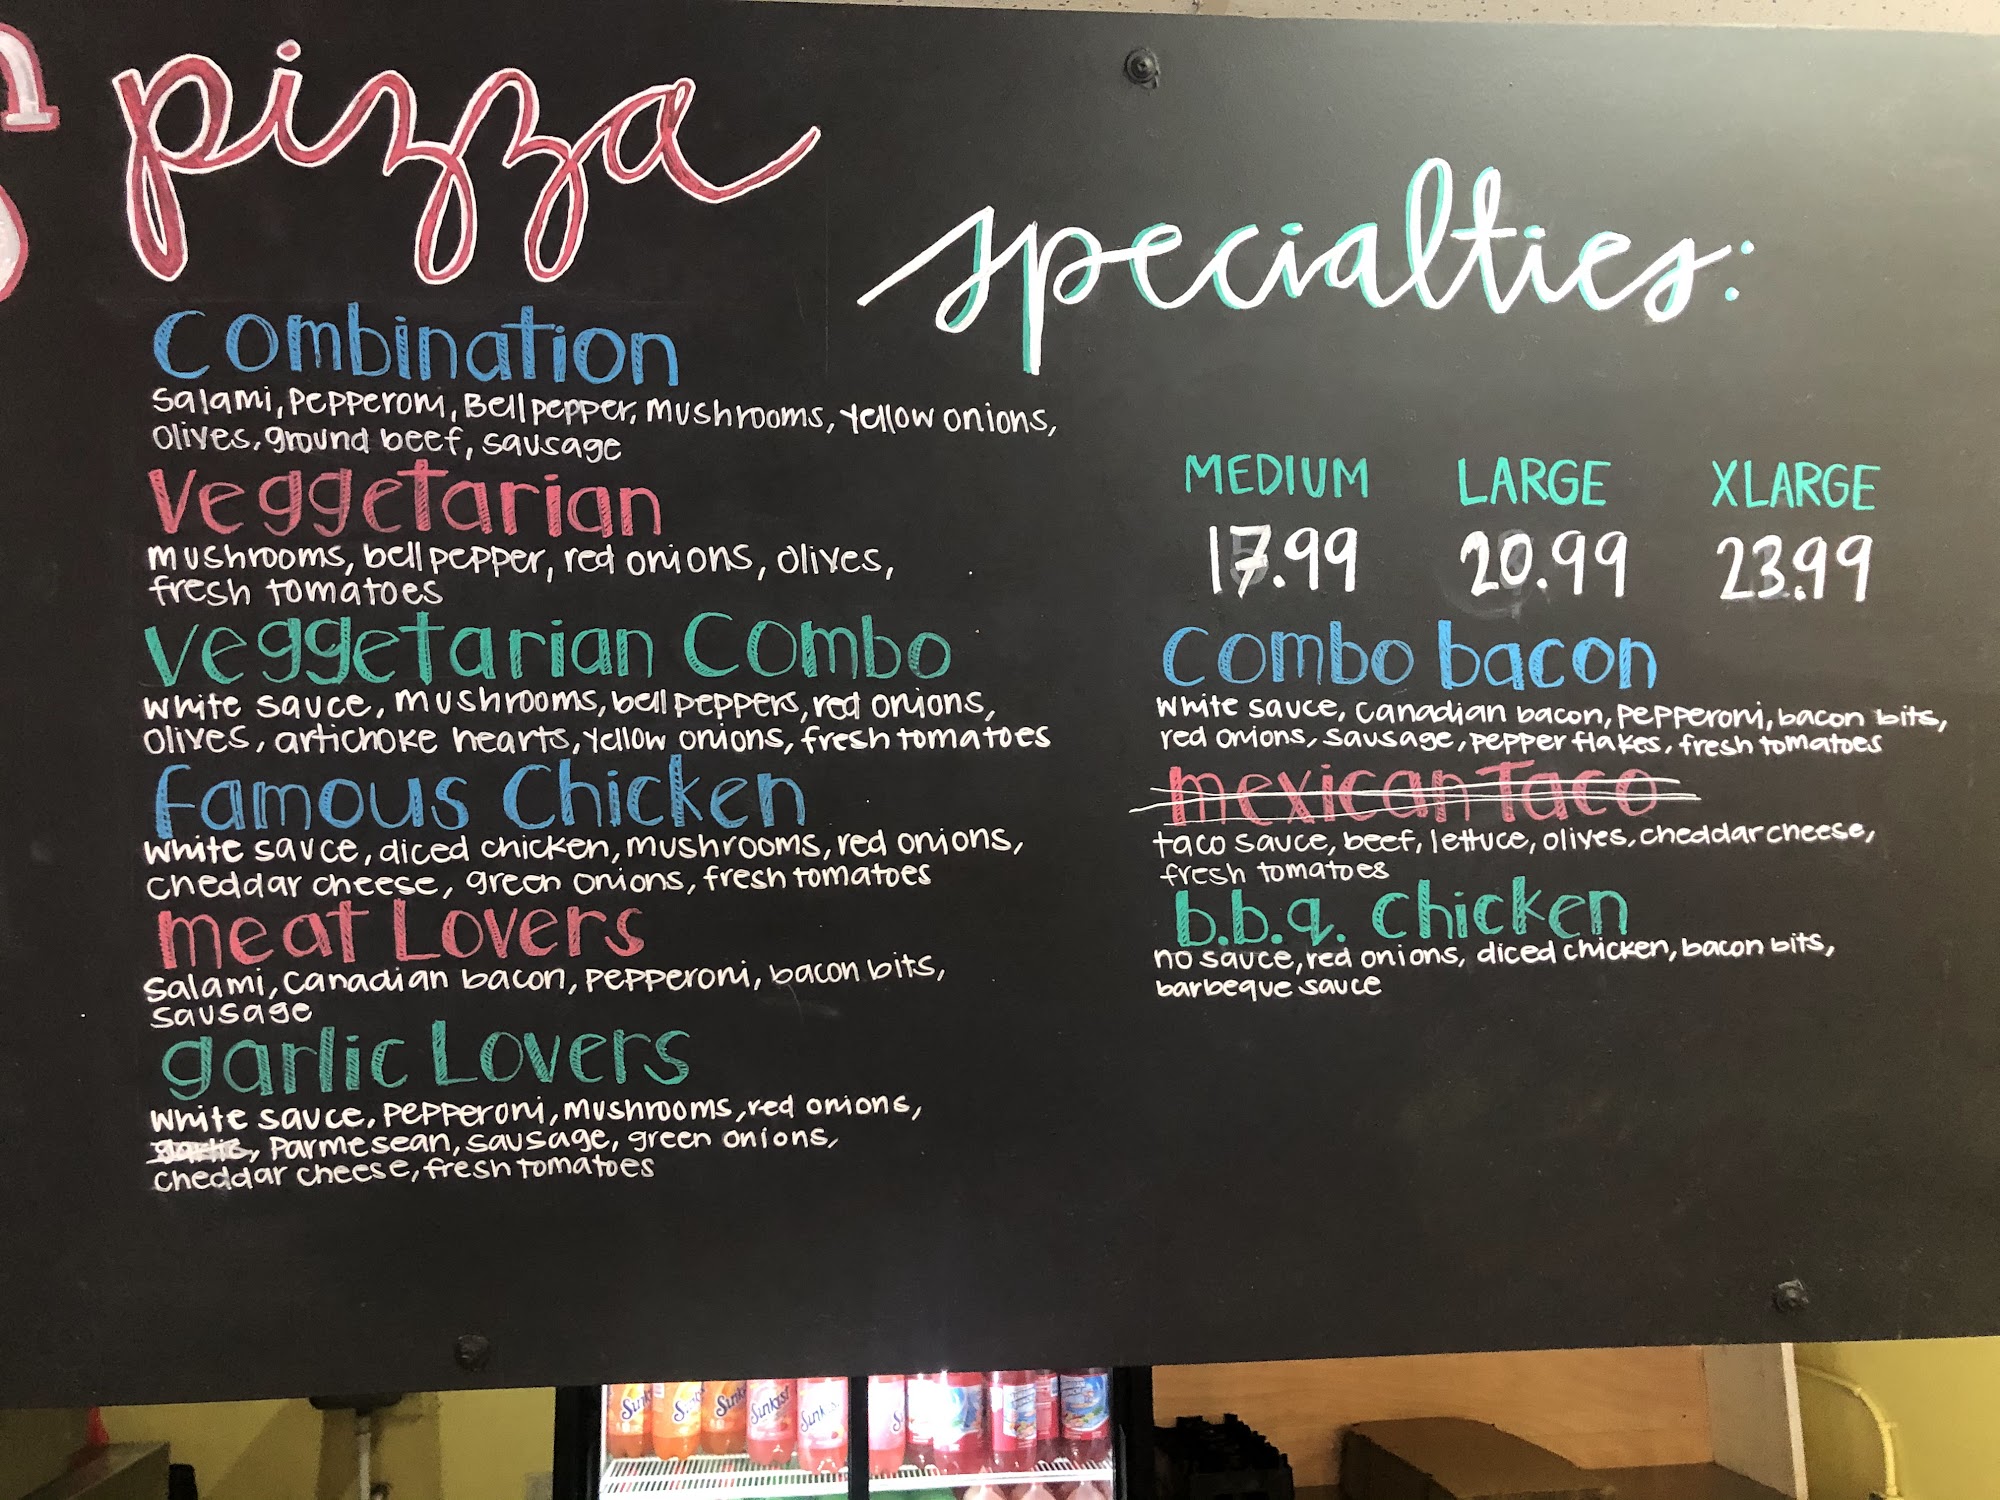 pizza
specialties:
Combination
Salami, Pepperoni, Bell pepper, Mushrooms, Yellow onions,
Olives, ground beef, sausage
Veggetarian
mushrooms, bell pepper, red onions, olives,
fresh tomatoes
Veggetarian Combo
White sauce, mushrooms, bell peppers, red onions,
Olives, artichoke hearts, yellow onions, fresh tomatoes
Famous Chicken
White sauce, diced chicken, mushrooms, red onions,
cheddar cheese, green onions, fresh tomatoes
meat Lovers
Salami, Canadian bacon, pepperoni, bacon bits,
sausage
garlic Lovers
White sauce, pepperoni, mushrooms, red onions,
garlic, parmesean, sausage, green onions,
cheddar cheese, fresh tomatoes
MEDIUM LARGE XLARGE
17.99 20.99 23.99
Combo bacon
White sauce, Canadian bacon, pepperoni, bacon bits,
red onions, sausage, pepper flakes, fresh tomatoes
mexican Taco
taco sauce, beef, lettuce, olives, cheddar cheese,
fresh tomatoes
b.b.q. Chicken
no sauce, red onions, diced chicken, bacon bits,
barbeque sauce
Sunkist